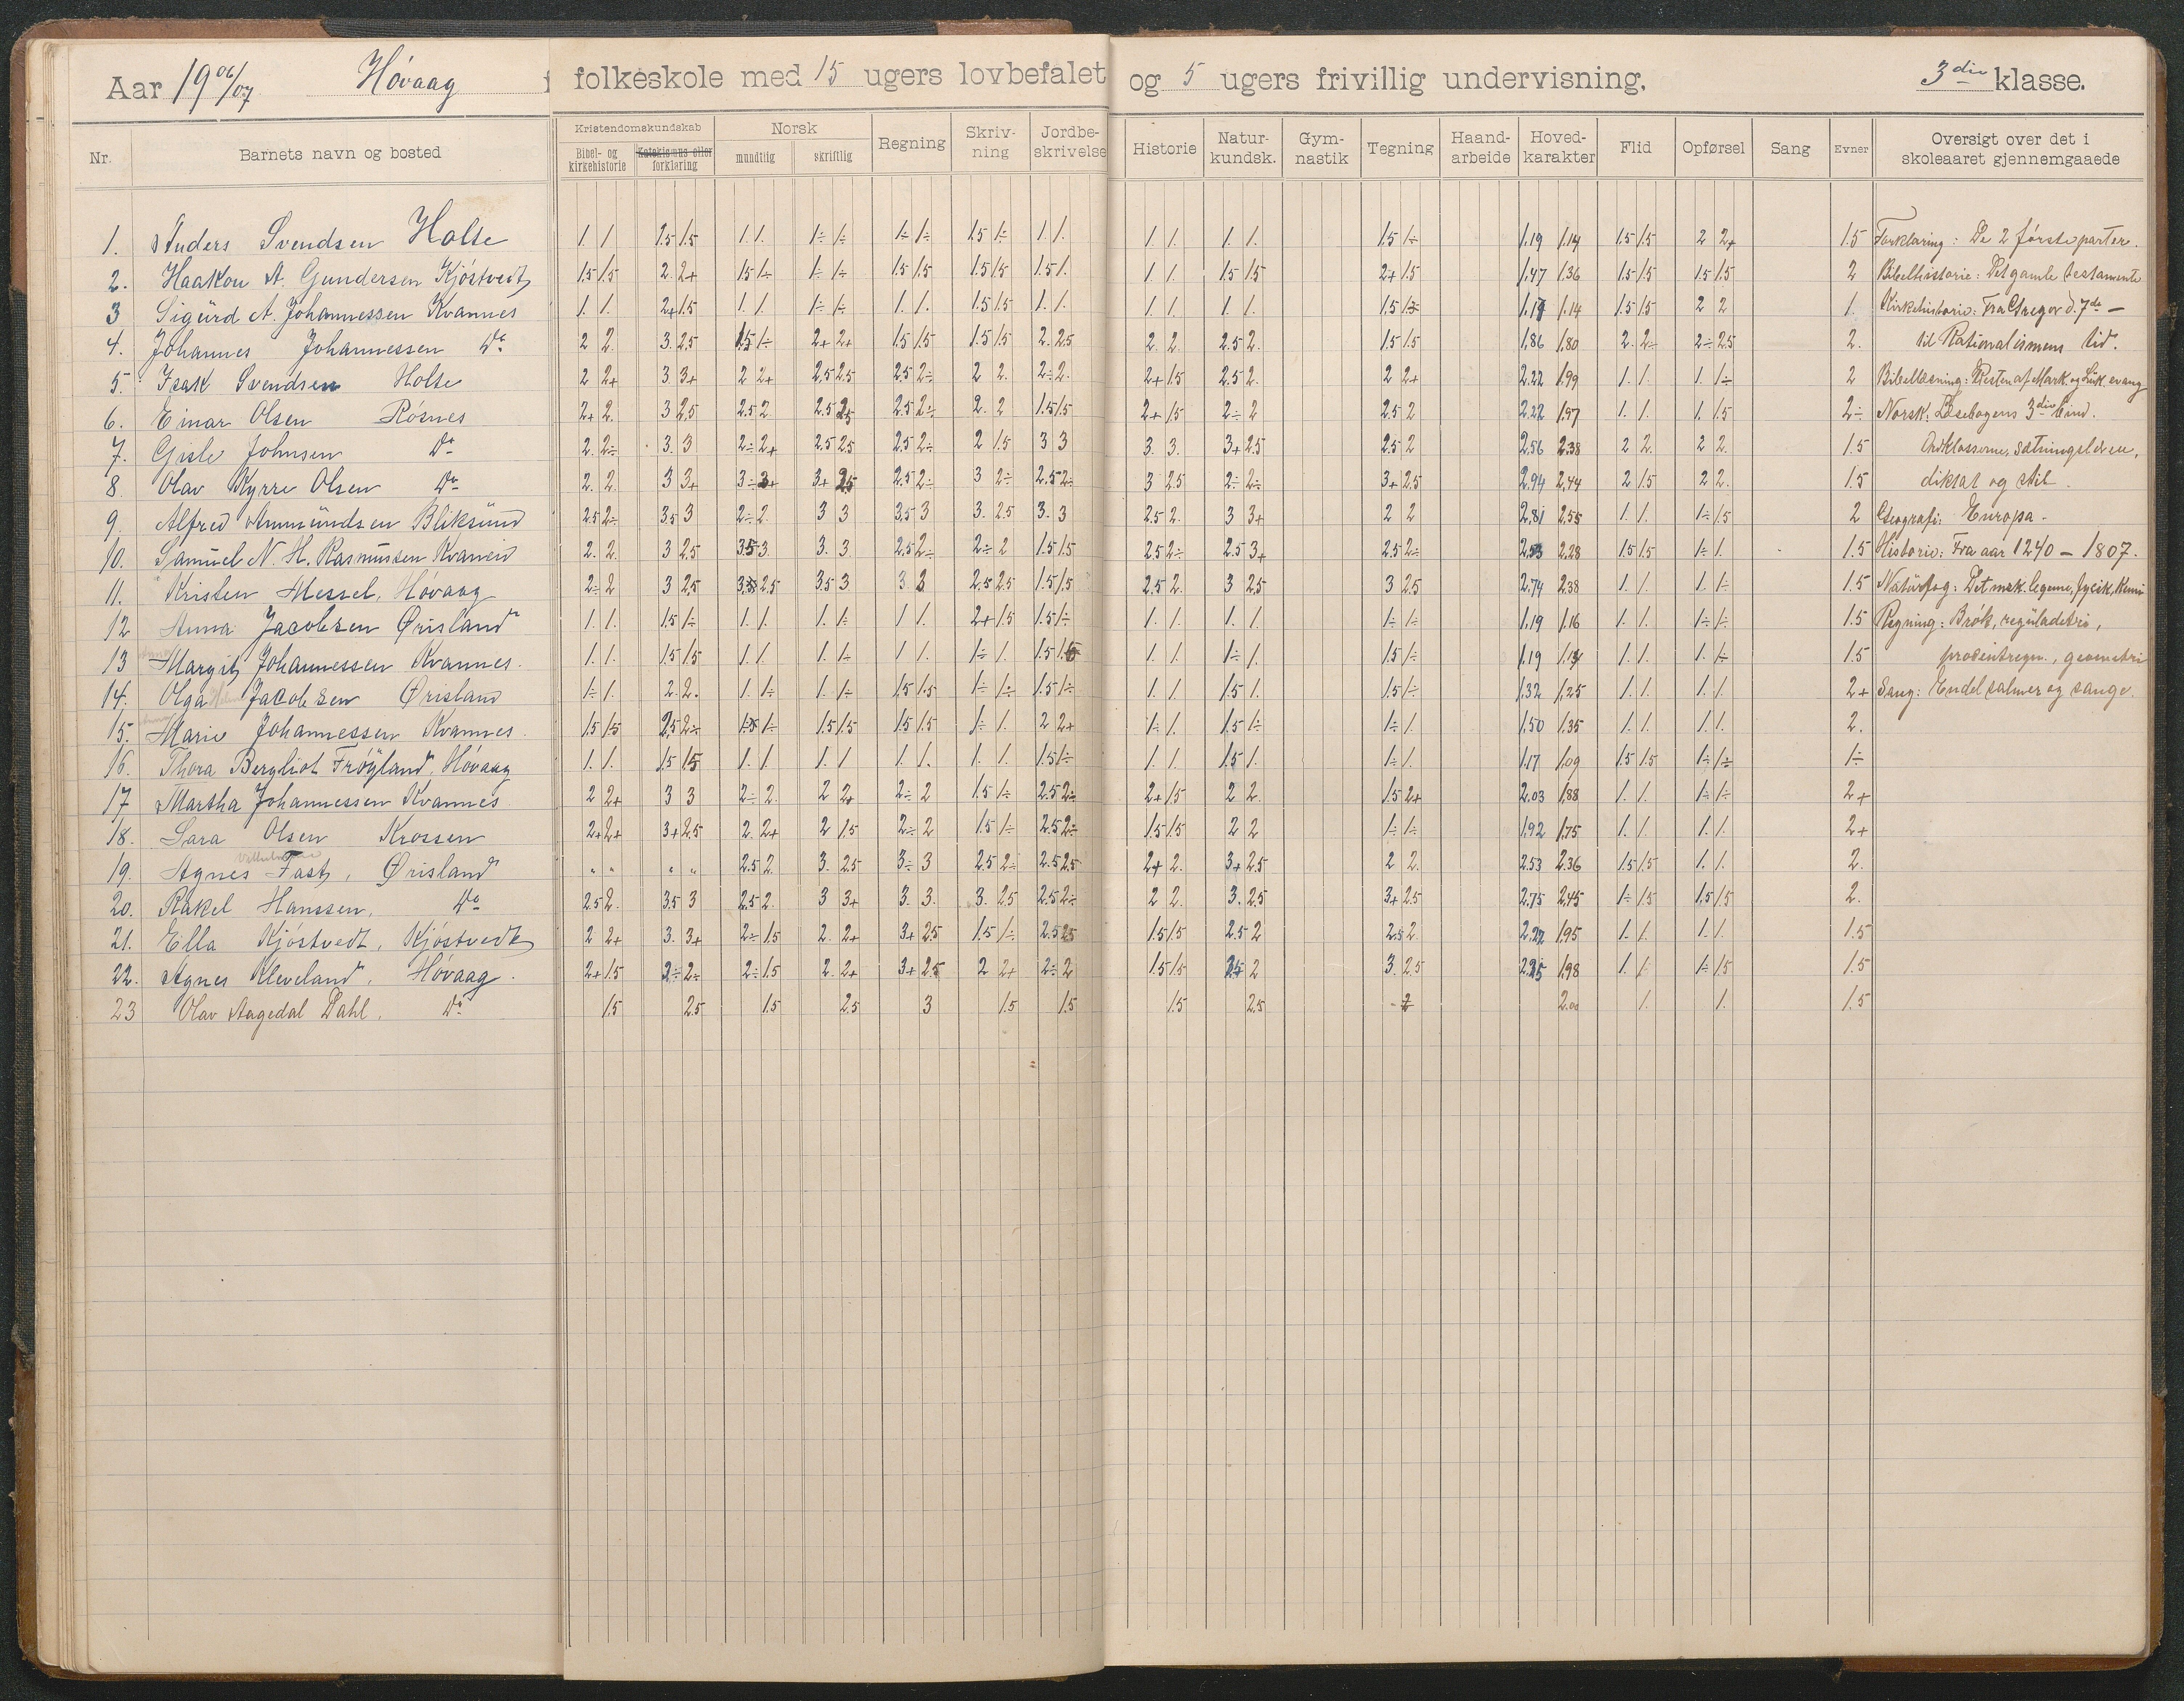 Aar 1906/07 Høvaag folkeskole med 15 ugers lovbefalet og 5 ugers frivillig undervisning. 3die klasse.
Nr. Barnets navn og bosted Kristendomskundskab Bibel- og kirkehistorie Katekismus eller forklaring Norsk mundtlig skriftlig Regning Skriv-ning Jordbe-skrivelse Historie Natur-kundsk. Gym-nastik Tegning Haand-arbeide Hoved-karakter Flid Opførsel Sang Evner Oversigt over det i skoleaaret gjennemgaaede
1. Anders Svendsen Holte 1. 1 1.5 1.5 1. 1. 1÷ 1÷ 1÷ 1÷ 1.5 1÷ 1. 1. 1. 1. 1. 1. 1.5 1÷ 1.19 1.14 1.5 1.5 2 2+ 1.5 Forklaring: De 2 første parter.
2. Haakon A. Gundersen Kjøstvedt 1.5 1.5 2. 2+ 1.5 1÷ 1÷ 1÷ 1.5 1.5 1.5 1.5 1.5 1. 1. 1. 1.5 1.5 2+ 1.5 1.47 1.36 1.5 1.5 1.5 1.5 2 Bibelhistorie: Det gamle testamente
3 Sigurd A. Johannessen Kvannes 1. 1. 2+ 1.5 1. 1. 1÷ 1÷ 1. 1. 1.5 1.5 1. 1. 1. 1. 1. 1. 1.5 1÷ 1.17 1.14 1.5 1.5 2 2 1. Kirkehistorie: Fra Gregor d. 7de –
4. Johannes Johannessen Do 2 2. 3. 2.5 1.5 1÷ 2+ 2+ 1.5 1.5 1.5 1.5 2. 2.5 2. 2. 2.5 2. 1.5 1.5 1.86 1.80 2. 2÷ 2÷ 2.5 2. til Rationalismens tid.
5. Isak Svendsen Holte 2 2+ 3. 3+ 2 2+ 2.5 2.5 2.5 2÷ 2 2. 2÷ 2. 2+ 1.5 2.5 2. 2 2+ 2.22 1.99 1. 1. 1. 1÷ 2 Bibellæsning: Resten af Mark. og Luk. evang
6. Einar Olsen Røsnes 2+ 2. 3 2.5 2.5 2. 2.5 2.5 2.5 2÷ 2. 2 1.5 1.5 2+ 1.5 2÷ 2 2.5 2 2.22 1.97 1. 1. 1. 1.5 2÷ Norsk: Læsebogens 3die bind.
7. Gisle Johnsen Do 2. 2÷ 3. 3 2÷ 2+ 2.5 2.5 2.5 2÷ 2 1.5 3 3 3. 3. 3+ 2.5 2.5 2 2.56 2.38 2 2. 2 2. 1.5 Ordklasserne, sætningslæren,
8. Olav Kyrre Olsen Do 2. 2. 3 3+ 3÷ 3+ 3+ 2.5 2.5 2÷ 3 2÷ 2.5 2÷ 3 2.5 2÷ 2÷ 3+ 2.5 2.94 2.44 2 1.5 2 2. 1.5 diktat og stil.
9. Alfred Ammundsen Bliksund 2.5 2÷ 3.5 3 2÷ 2 3 3 3.5 3 3. 2.5 3. 3 2.5 2. 3 3+ 2 2 2.81 2.55 1. 1. 1÷ 1.5 2 Geografi: Europa.
10. Samuel N. H. Rasmussen 2. 2. 3 2.5 3.5 3. 3. 3 2.5 2÷ 2÷ 2 1.5 1.5 2.5 2÷ 2.5 3+ 2.5 2÷ 2.53 2.28 1.5 1.5 1÷ 1. 1.5 Historie: Fra aar 1240 – 1807.
11. Kristen Messel, Høvaag 2÷ 2 3 2.5 2.5 3.5 3 3 3 2.5 2.5 1.5 1.5 2.5 2. 3 2.5 3 2.5 2.74 2.38 1. 1. 1. 1÷ 1.5 Naturfag: Det msk. legeme, fysik, kemi
12 Anna Jacobsen Ørisland 1. 1. 1.5 1÷ 1. 1. 1. 1÷ 1 1. 2+ 1.5 1.5 1÷ 1. 1. 1. 1. 1÷ 1÷ 1.19 1.16 1. 1. 1÷ 1÷ 1.5 Regning: Brøk, reguladetri,
13 Margit Johannessen Kvannes. 1. 1. 1.5 1.5 1. 1. 1. 1÷ 1 1. 1÷ 1. 1.5 1.5 1. 1. 1÷ 1. 1.5 1÷ 1.19 1.14 1. 1. 1. 1÷ 1.5 procentregn., geometri
14. Olga Jacobsen Ørisland 1÷ 1. 2. 2. 1. 1÷ 1. 1÷ 1.5 1.5 1÷ 1÷ 1.5 1÷ 1. 1. 1.5 1. 1.5 1÷ 1.32 1.25 1. 1. 1. 1. 2+ Sang: Endel salmer og sange.
15. Marie Johannessen Kvannes. 1.5 1.5 2.5 2÷ 1÷ 1.5 1.5 1.5 1.5 1÷ 1. 2 2+ 1÷ 1. 1.5 1÷ 1÷ 1. 1.50 1.35 1. 1. 1. 1. 2.
16. Thora Bergliot Frøyland, Høvaag 1. 1. 1.5 1.5 1. 1. 1. 1 1. 1. 1. 1. 1.5 1÷ 1. 1. 1.5 1. 1÷ 1. 1.17 1.09 1.5 1.5 1÷ 1÷ 1÷
17 Martha Johannessen Kvannes 2 2+ 3 3 2÷ 2. 2 2+ 2÷ 2 1.5 1÷ 2.5 2÷ 2+ 1.5 2 2. 1.5 2+ 2.03 1.88 1. 1. 1÷ 1÷ 2+
18. Sara Olsen Krossen 2+ 2+ 3+ 2.5 2. 2+ 2 1.5 2÷ 2 1.5 1÷ 2.5 2÷ 1.5 1.5 2 2 1÷ 1÷ 1.92 1.75 1. 1. 1. 1. 2+
19. Agnes Fast, Ørisland „ „ „ „ 2.5 2. 3. 2.5 3÷ 3 2.5 2÷ 2.5 2.5 2+ 2. 3+ 2.5 2 2. 2.53 2.36 1.5 1.5 1. 1. 2.
20. Rakel Hanssen, Do 2.5 2. 3.5 3 2.5 2. 3 3+ 3. 3. 3. 2.5 2.5 2÷ 2 2. 3. 2.5 3+ 2.5 2.75 2.45 1÷ 1.5 1.5 1.5 2.
21. Ella Kjøstvedt, Kjøstvedt 2 2+ 3. 3+ 2÷ 1.5 2. 2+ 3+ 2.5 1.5 1÷ 2.5 2.5 1.5 1.5 2.5 2 2.5 2. 2.22 1.95 1. 1. 1. 1. 1.5
22. Agnes Kleveland, Høvaag. 2+ 1.5 2÷ 2÷ 2÷ 1.5 2. 2+ 3+ 2.5 2 2+ 2÷ 2 1.5 1.5 2.5 2 3. 2.5 2.25 1.98 1. 1. 1÷ 1.5 1.5
23 Olav Aagedal Dahl, Do 1.5 2.5 1.5 2.5 3 1.5 1.5 1.5 2.5 2 2.00 1. 1. 1.5